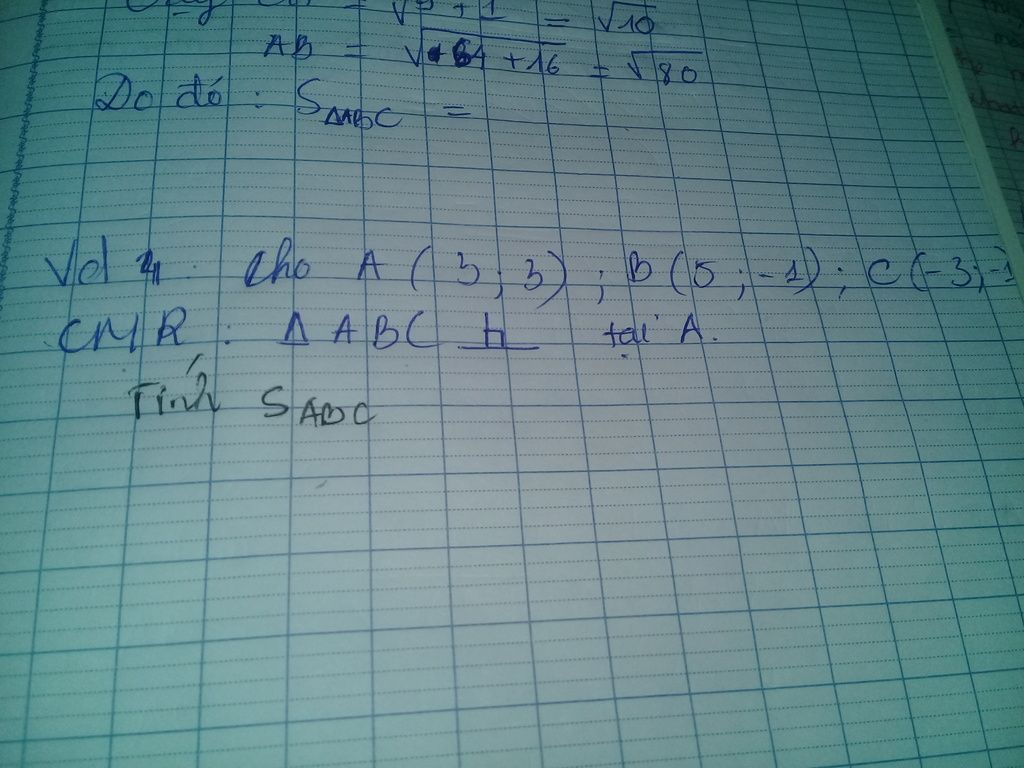 = √9 + 1 = √10
AB = √64 + 16 = √80
Do đó : S ΔABC =
Vd 4 Cho A ( 3 ; 3 ) ; B ( 5 ; -1 ) ; C ( -3 ; -1
CMR : Δ ABC tại A.
Tính S ABC